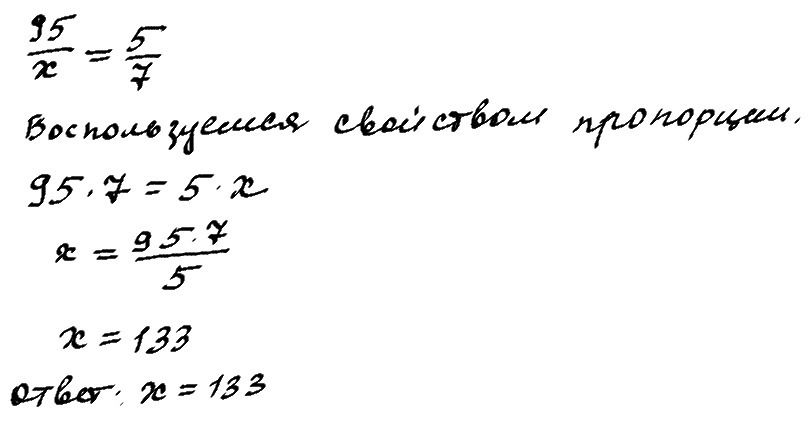 95/x = 5/7
Воспользуемся свойством пропорции.
95·7 = 5·x
x = 95·7/5
x = 133
Ответ: x = 133